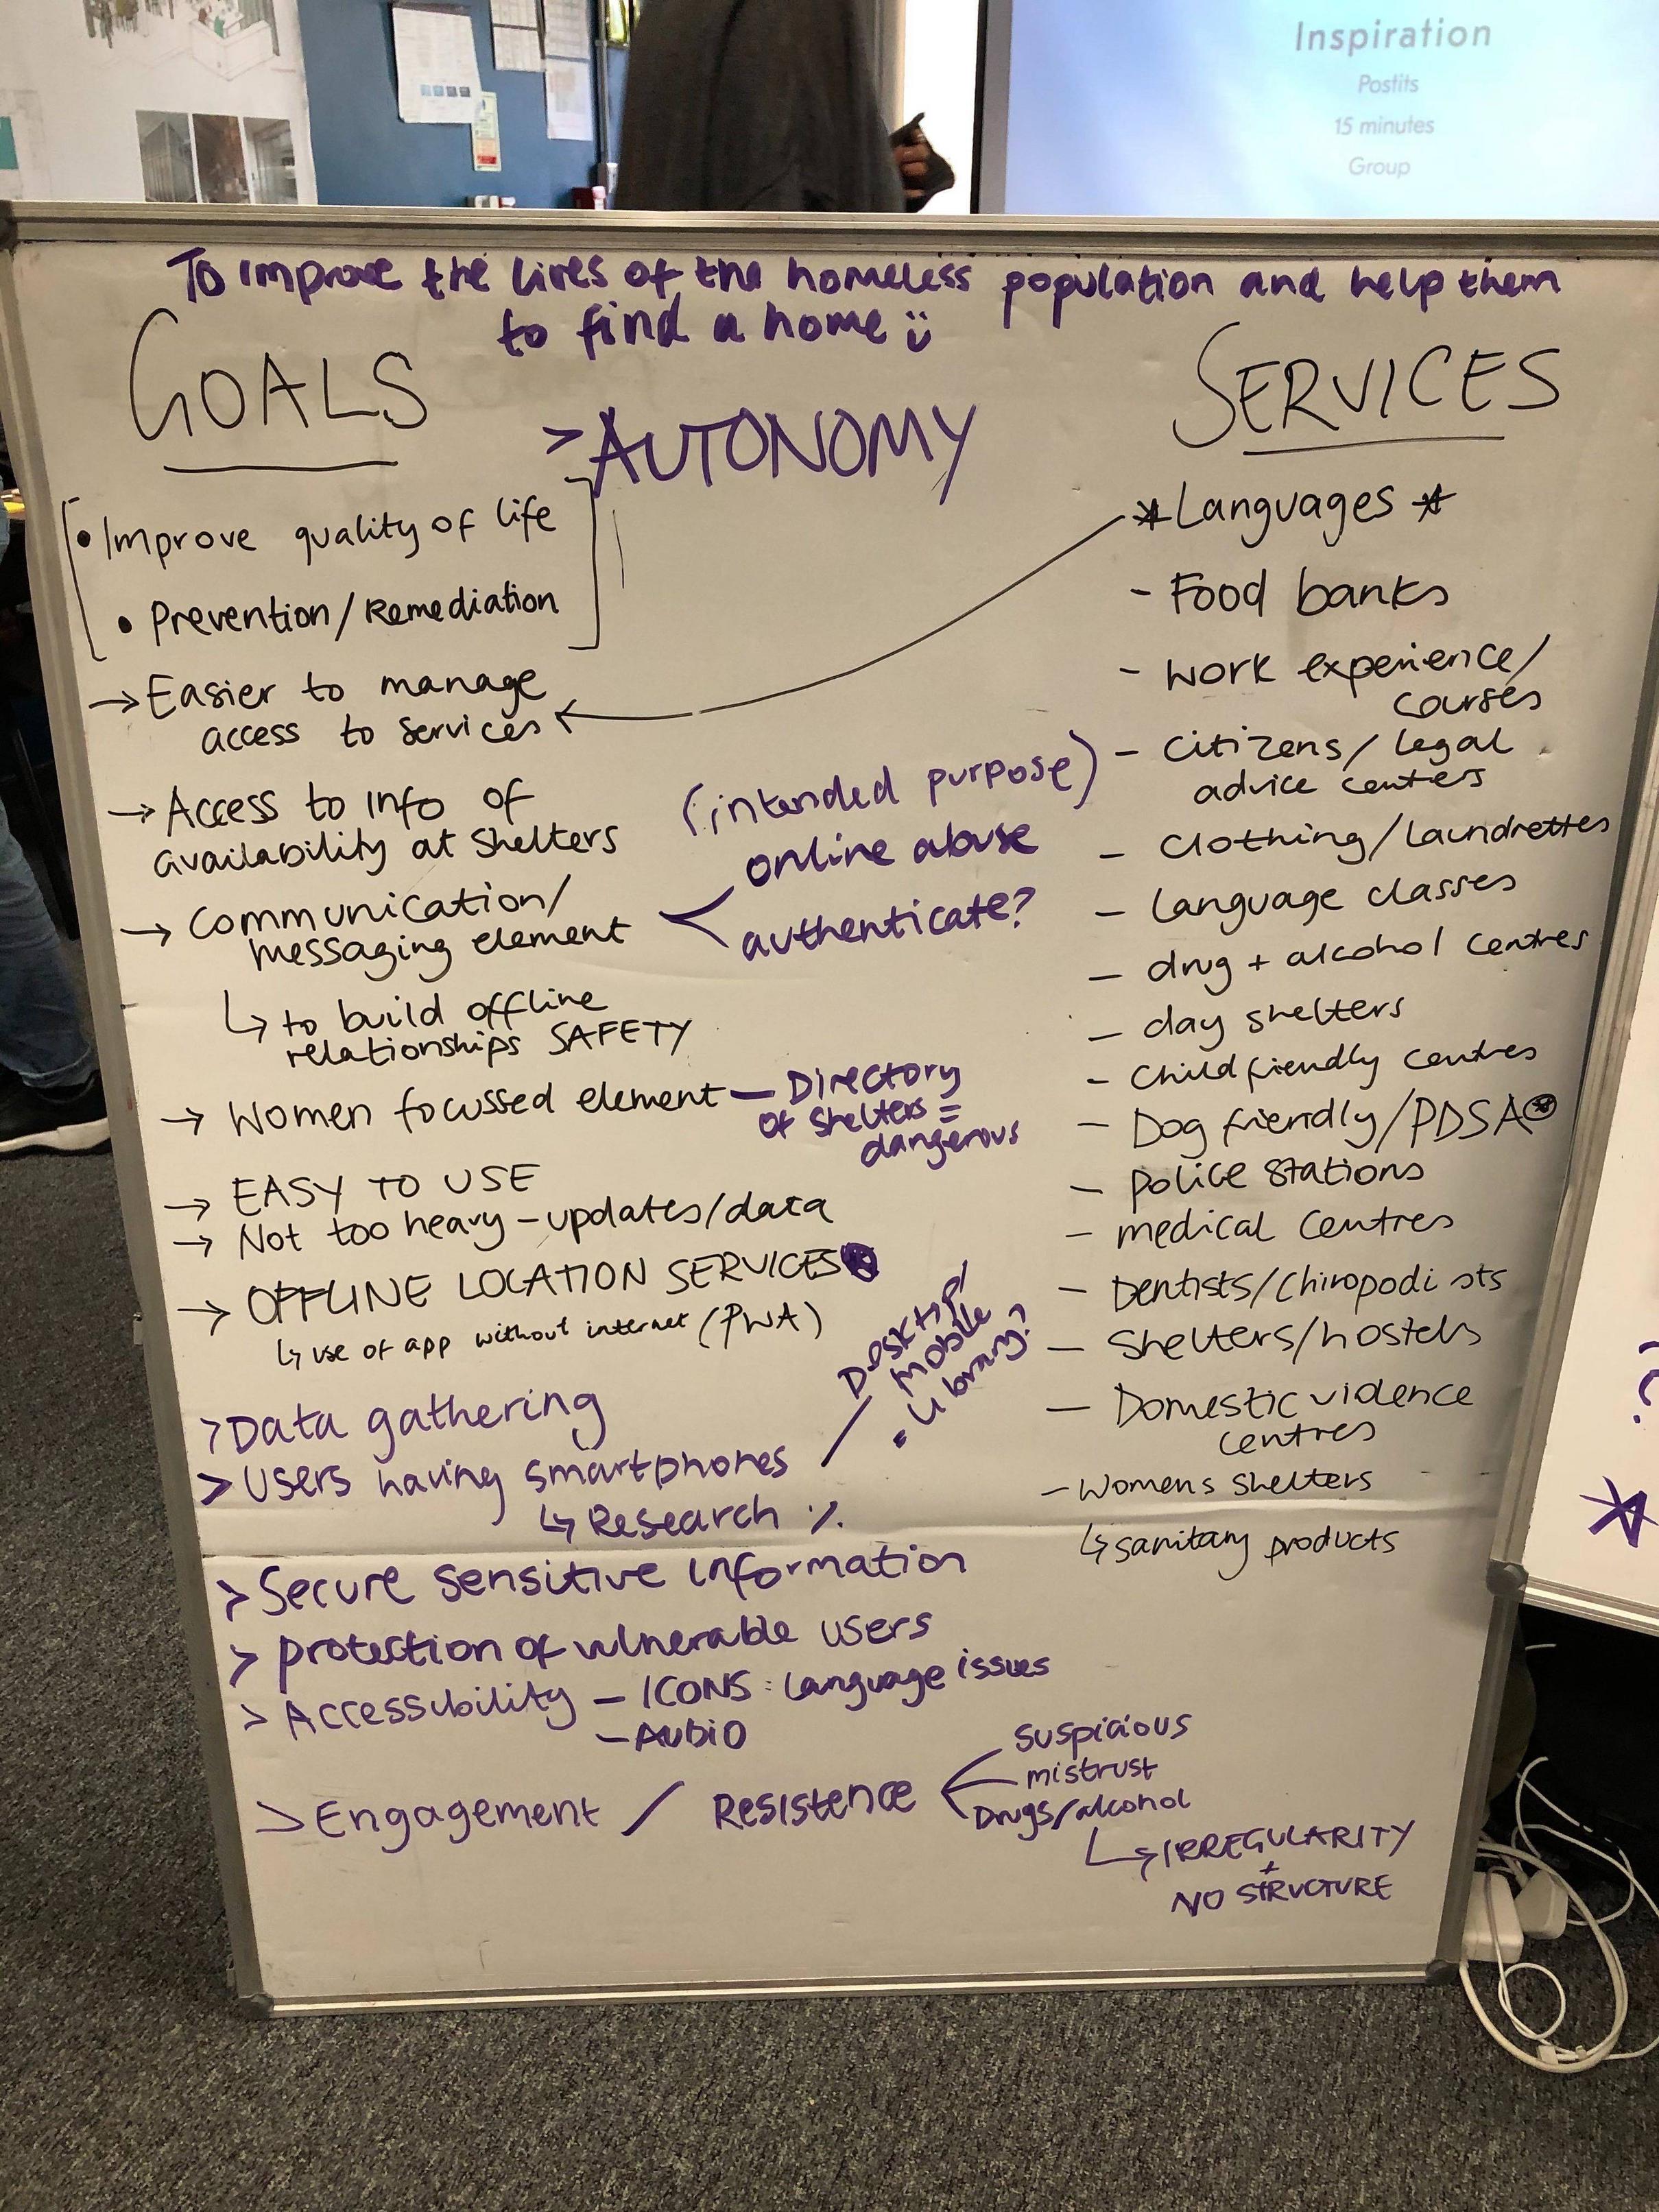 Inspiration
Postits
15 minutes
Group
To improve the lives of the homeless population and help them
to find a home
GOALS
> AUTONOMY
• Improve quality of life
• Prevention/Remediation
→ Easier to manage
access to services
→ Access to info of
availability at shelters
→ Communication/
messaging element
(intended purpose)
online abuse
authenticate?
↳ to build offline
relationships SAFETY
→ Women focussed element — Directory
of shelters =
dangerous
→ EASY TO USE
→ Not too heavy - updates/data
→ OFFLINE LOCATION SERVICES
↳ use of app without internet (PWA)
> Data gathering
> Users having smartphones
Desktop/
mobile
= library?
↳ Research %
> Secure sensitive information
> protection of vulnerable users
> Accessibility - ICONS: language issues
- AUDIO
> Engagement / Resistence
suspicious
mistrust
Drugs/alcohol
↳ IRREGULARITY
+
NO STRUCTURE
SERVICES
* Languages *
- Food banks
- work experience/
courses
- citizens/legal
advice centers
- Clothing/laundrettes
- language classes
- drug + alcohol centres
- day shelters
- Child friendly centres
- Dog friendly/PDSA
- police stations
- medical centres
- Dentists/Chiropodists
- Shelters/hostels
- Domestic violence
centres
- Womens shelters
↳ sanitary products